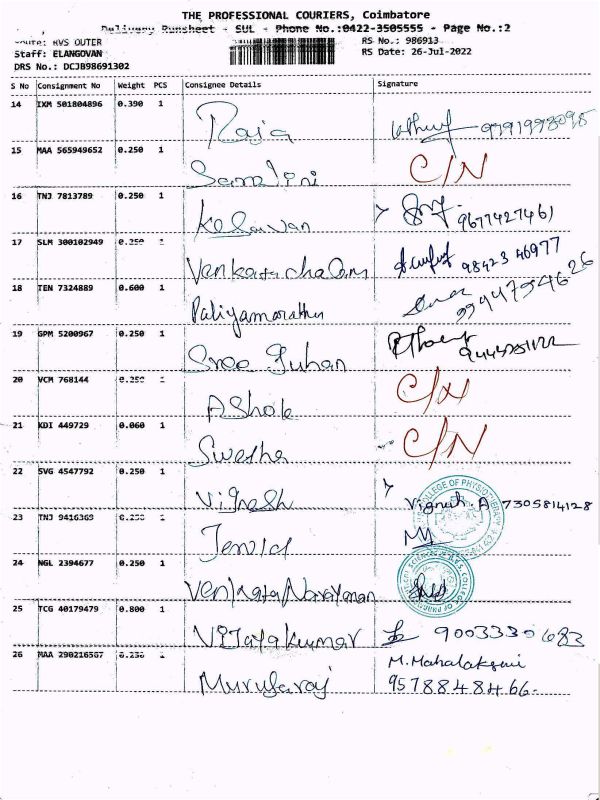 THE PROFESSIONAL COURIERS, Coimbatore
Delivery Runsheet - SUL - Phone No.:0422-3505555 - Page No.:2
Route: RVS OUTER RS No.: 986913
Staff: ELANGOVAN RS Date: 26-Jul-2022
DRS No.: DCJB98691302
S No Consignment No Weight PCS Consignee Details Signature
14 IXM 501804896 0.390 1
Raja
15 MAA 565949652 0.250 1 C/N
Samlini
16 TNJ 7813789 0.250 1
Kesavan 9677427461
17 SLM 300102949 0.250 1
Venkatachalam 98423 46977
18 TEN 7324889 0.600 1
Paliyamarathu 9994754626
19 GPM 5200967 0.250 1
Sree Juhan
20 VCM 768144 0.250 1 C/N
AShok
21 KDI 449729 0.060 1 C/N
Swetha
22 SVG 4547792 0.250 1
Vignesh Vignesh.A 7305814128
23 TNJ 9416369 0.250 1
24 NGL 2394677 0.250 1
Venkata Narayanan
25 TCG 40179479 0.800 1
Vijayakumar 9003330683
26 MAA 290216567 0.250 1 M.Mahalakshmi
Murugaraj 9578848466.